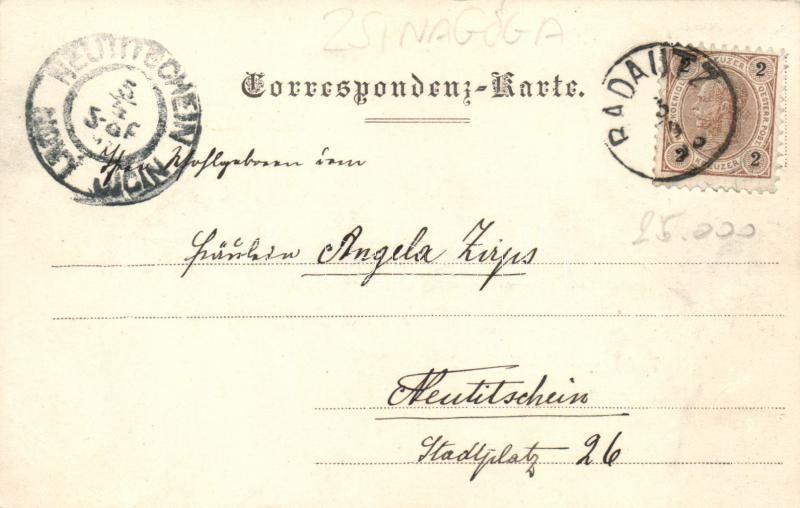 ZSINAGÓGA
NEUTITSCHEIN
NOVÝ JIČÍN
Correspondenz-Karte.
RADAUTZ
2 KREUZER 2
2 KREUZER 2
Wohlgeboren dem
Fräulein Angela Zirps
25.000
Neutitschein
Stadtplatz 26